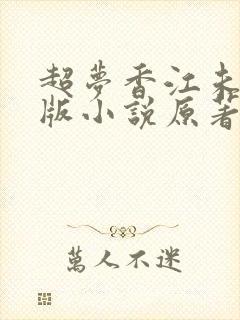 超夢香江未
版小說原著
萬人不迷